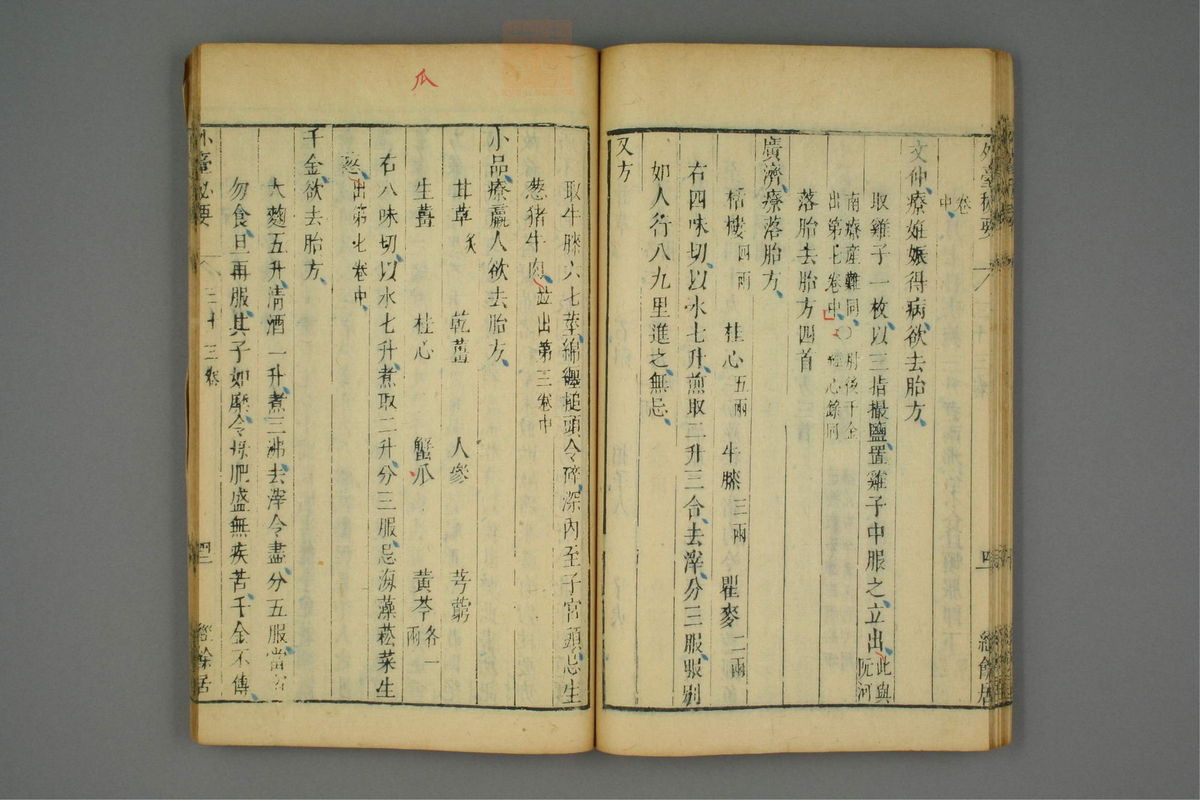 外臺秘要
卷中
文仲療妊娠得病欲去胎方
取雞子一枚以三指撮鹽置雞子中服之立出此與阮河
南療產難同○肘後千金
出第七卷中
落胎去胎方四首
廣濟療落胎方
栝樓四兩 桂心五兩 牛膝三兩 瞿麥二兩
右四味切以水七升煎取二升三合去滓分三服服別
如人行八九里進之無忌
又方
取牛膝六七莖綿纏槌頭令碎深內至子宮頭忌生
葱猪牛肉並出第三卷中
小品療羸人欲去胎方
甘草炙 乾薑 人參 芎藭
生薑 桂心 蟹爪 黃芩各一兩
右八味切以水七升煮取二升分三服忌海藻菘菜生
葱出第七卷中
千金欲去胎方
大麴五升清酒一升煮三沸去滓令盡分五服當宿
勿食旦再服其子如糜令母肥盛無疾苦千金不傳
外臺秘要 三十三卷 四二 經餘居
瓜